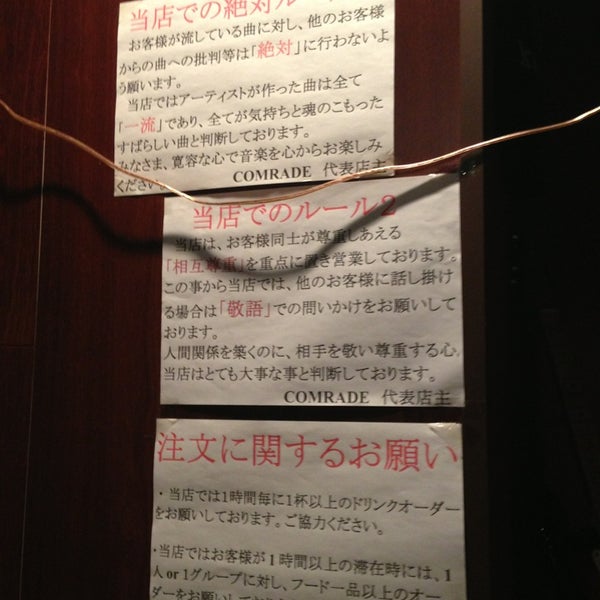 当店での絶対ル
お客様が流している曲に対し、他のお客様
からの曲への批判等は「絶対」に行わないよ
う願います。
当店ではアーティストが作った曲は全て
「一流」であり、全てが気持ちと魂のこもった
すばらしい曲と判断しております。
みなさま、寛容な心で音楽を心からお楽しみ
ください。
COMRADE 代表店主
当店でのルール2
当店は、お客様同士が尊重しあえる
「相互尊重」を重点に置き営業しております。
この事から当店では、他のお客様に話し掛け
る場合は「敬語」での問いかけをお願いして
おります。
人間関係を築くのに、相手を敬い尊重する心。
当店はとても大事な事と判断しております。
COMRADE 代表店主
注文に関するお願い
・当店では1時間毎に1杯以上のドリンクオーダー
をお願いしております。ご協力ください。
・当店ではお客様が1時間以上の滞在時には、1
人or1グループに対し、フード一品以上のオー
ダーをお願いしており